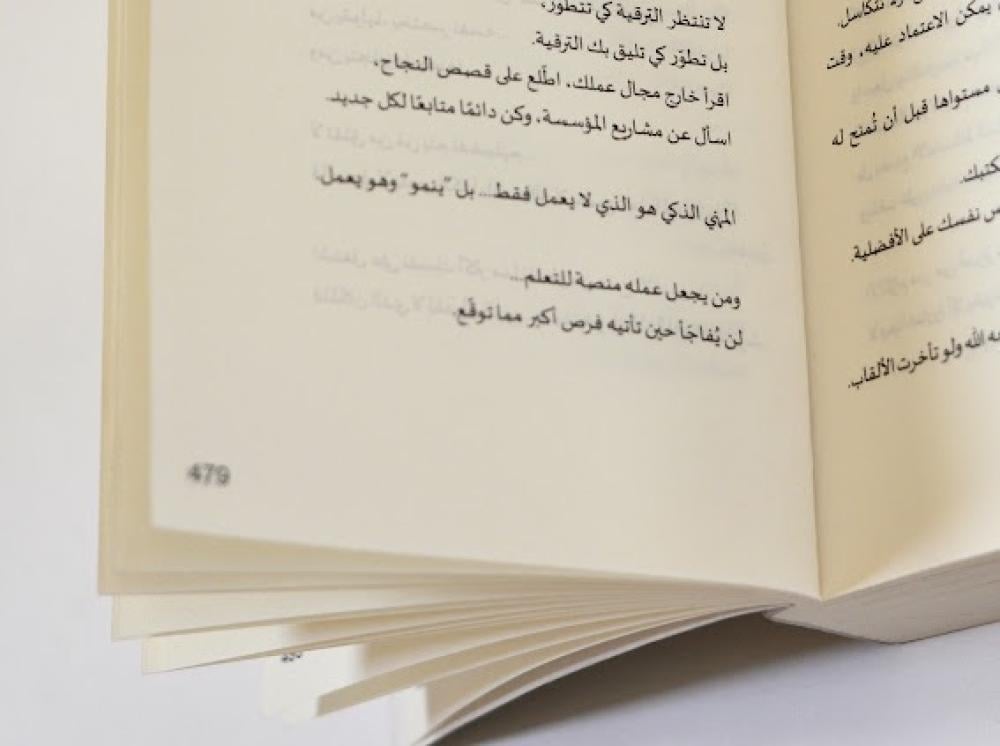 تتكاسل.
يمكن الاعتماد عليه، وقت
مستواها قبل أن تُمنح له
مكتبك.
نفسك على الأفضلية.
الله ولو تأخرت الألقاب.
لا تنتظر الترقية كي تتطور،
بل تطوّر كي تليق بك الترقية.
اقرأ خارج مجال عملك، اطّلع على قصص النجاح،
اسأل عن مشاريع المؤسسة، وكن دائمًا متابعًا لكل جديد.
المهني الذكي هو الذي لا يعمل فقط... بل "ينمو" وهو يعمل.
ومن يجعل عمله منصة للتعلم...
لن يُفاجَأ حين تأتيه فرص أكبر مما توقّع.
479